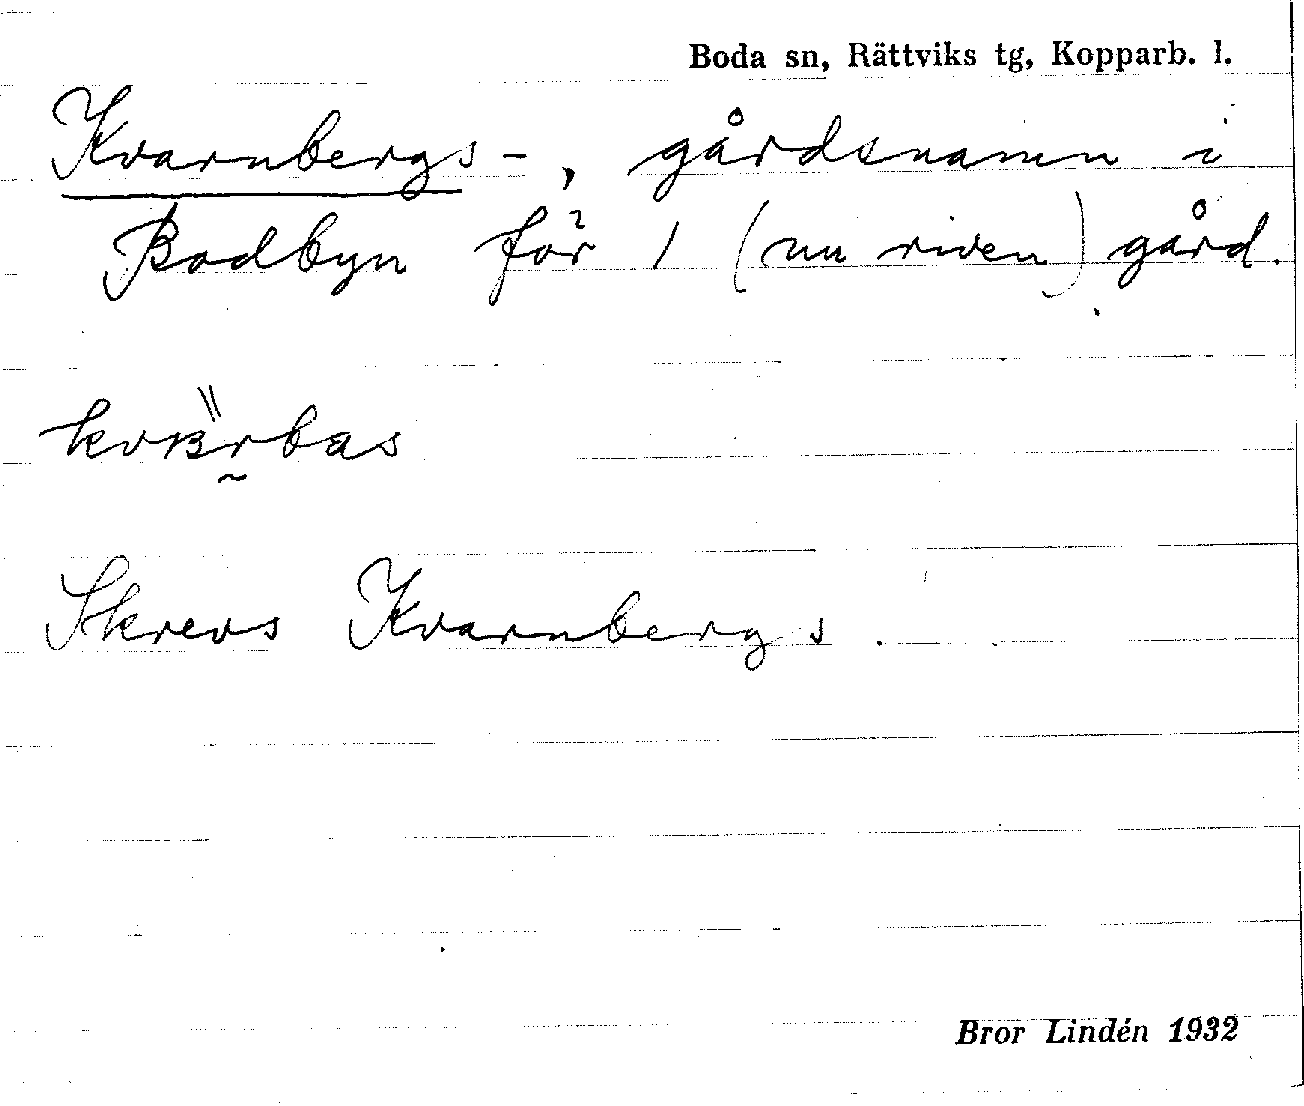 Boda sn, Rättviks tg, Kopparb. l.
Kvarnbergs-, gårdsnamn i
Bodbyn för 1 (nu riven) gård.
Skrevs Kvarnbergs.
Bror Lindén 1932